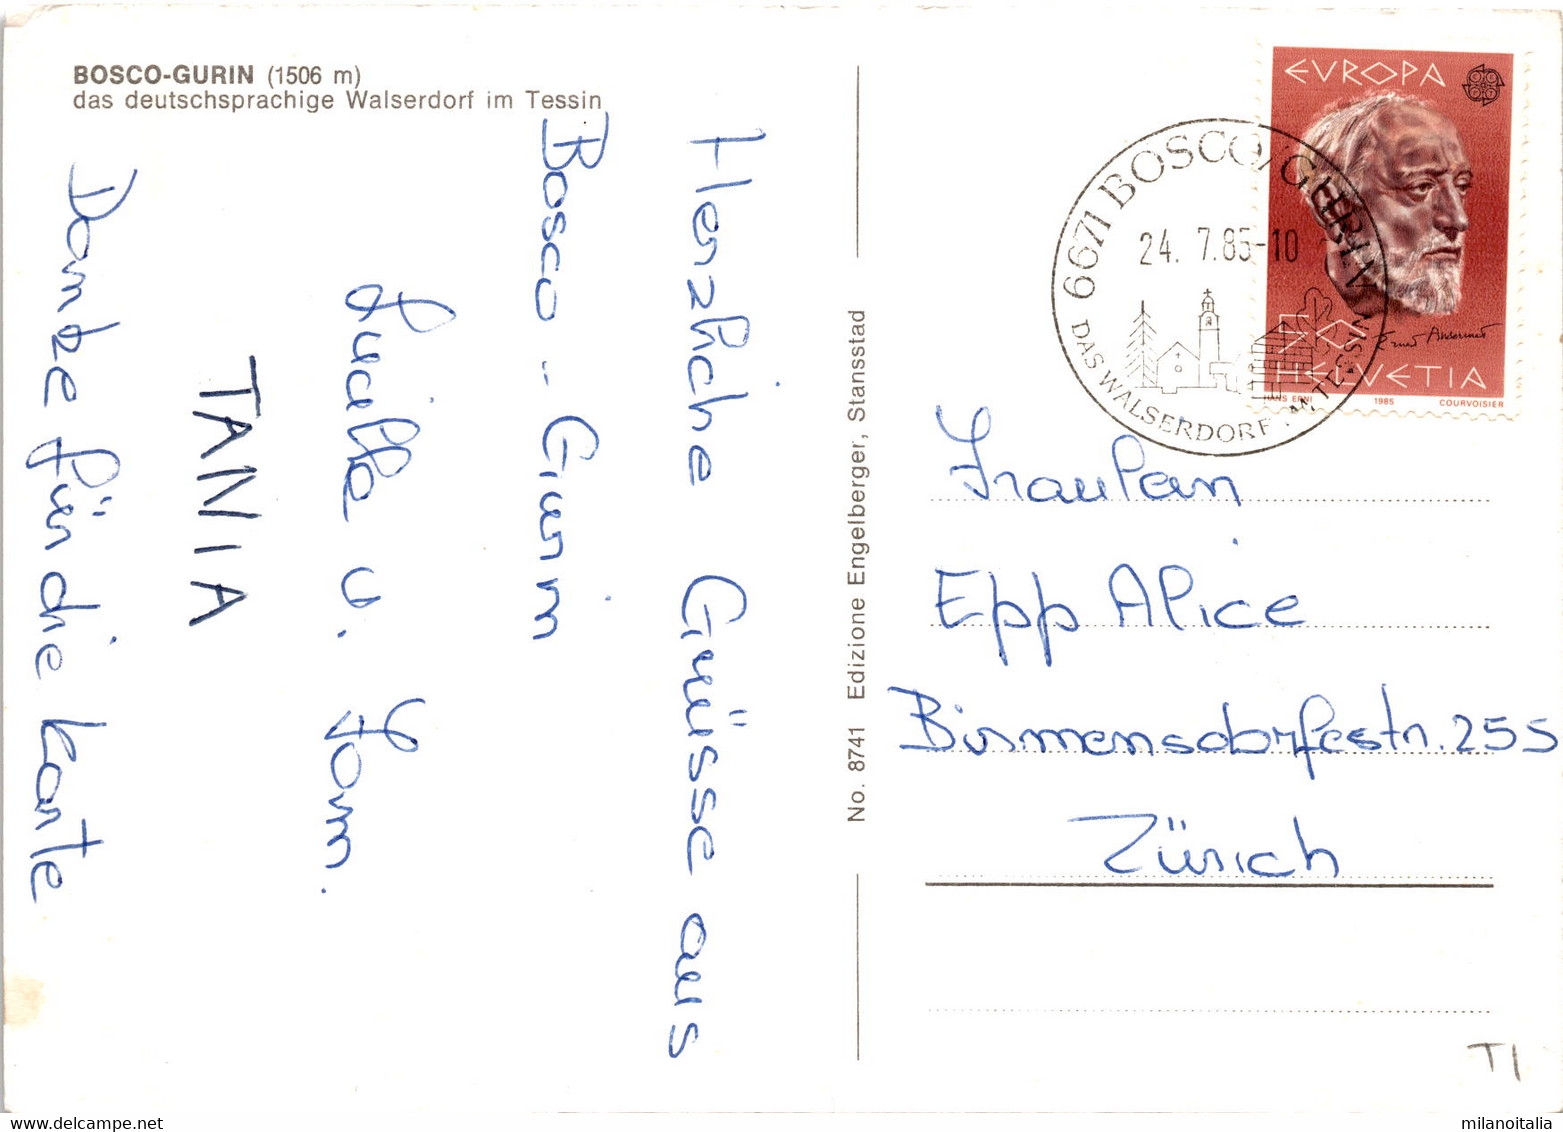 BOSCO-GURIN (1506 m)
das deutschsprachige Walserdorf im Tessin
Herzliche Grüsse aus
Bosco - Gurin
Lucille u. Yom.
TANIA
Danke für die Karte
No. 8741 Edizione Engelberger, Stansstad
EUROPA
50
Ernest Ansermet
HELVETIA
HANS ERNI 1985 COURVOISIER
6671 BOSCO/GURIN
24. 7.85-10
DAS WALSERDORF IM TESSIN
Fraulein
Epp Alice
Birmensdorfestr. 255
Zürich
TI
milanoitalia